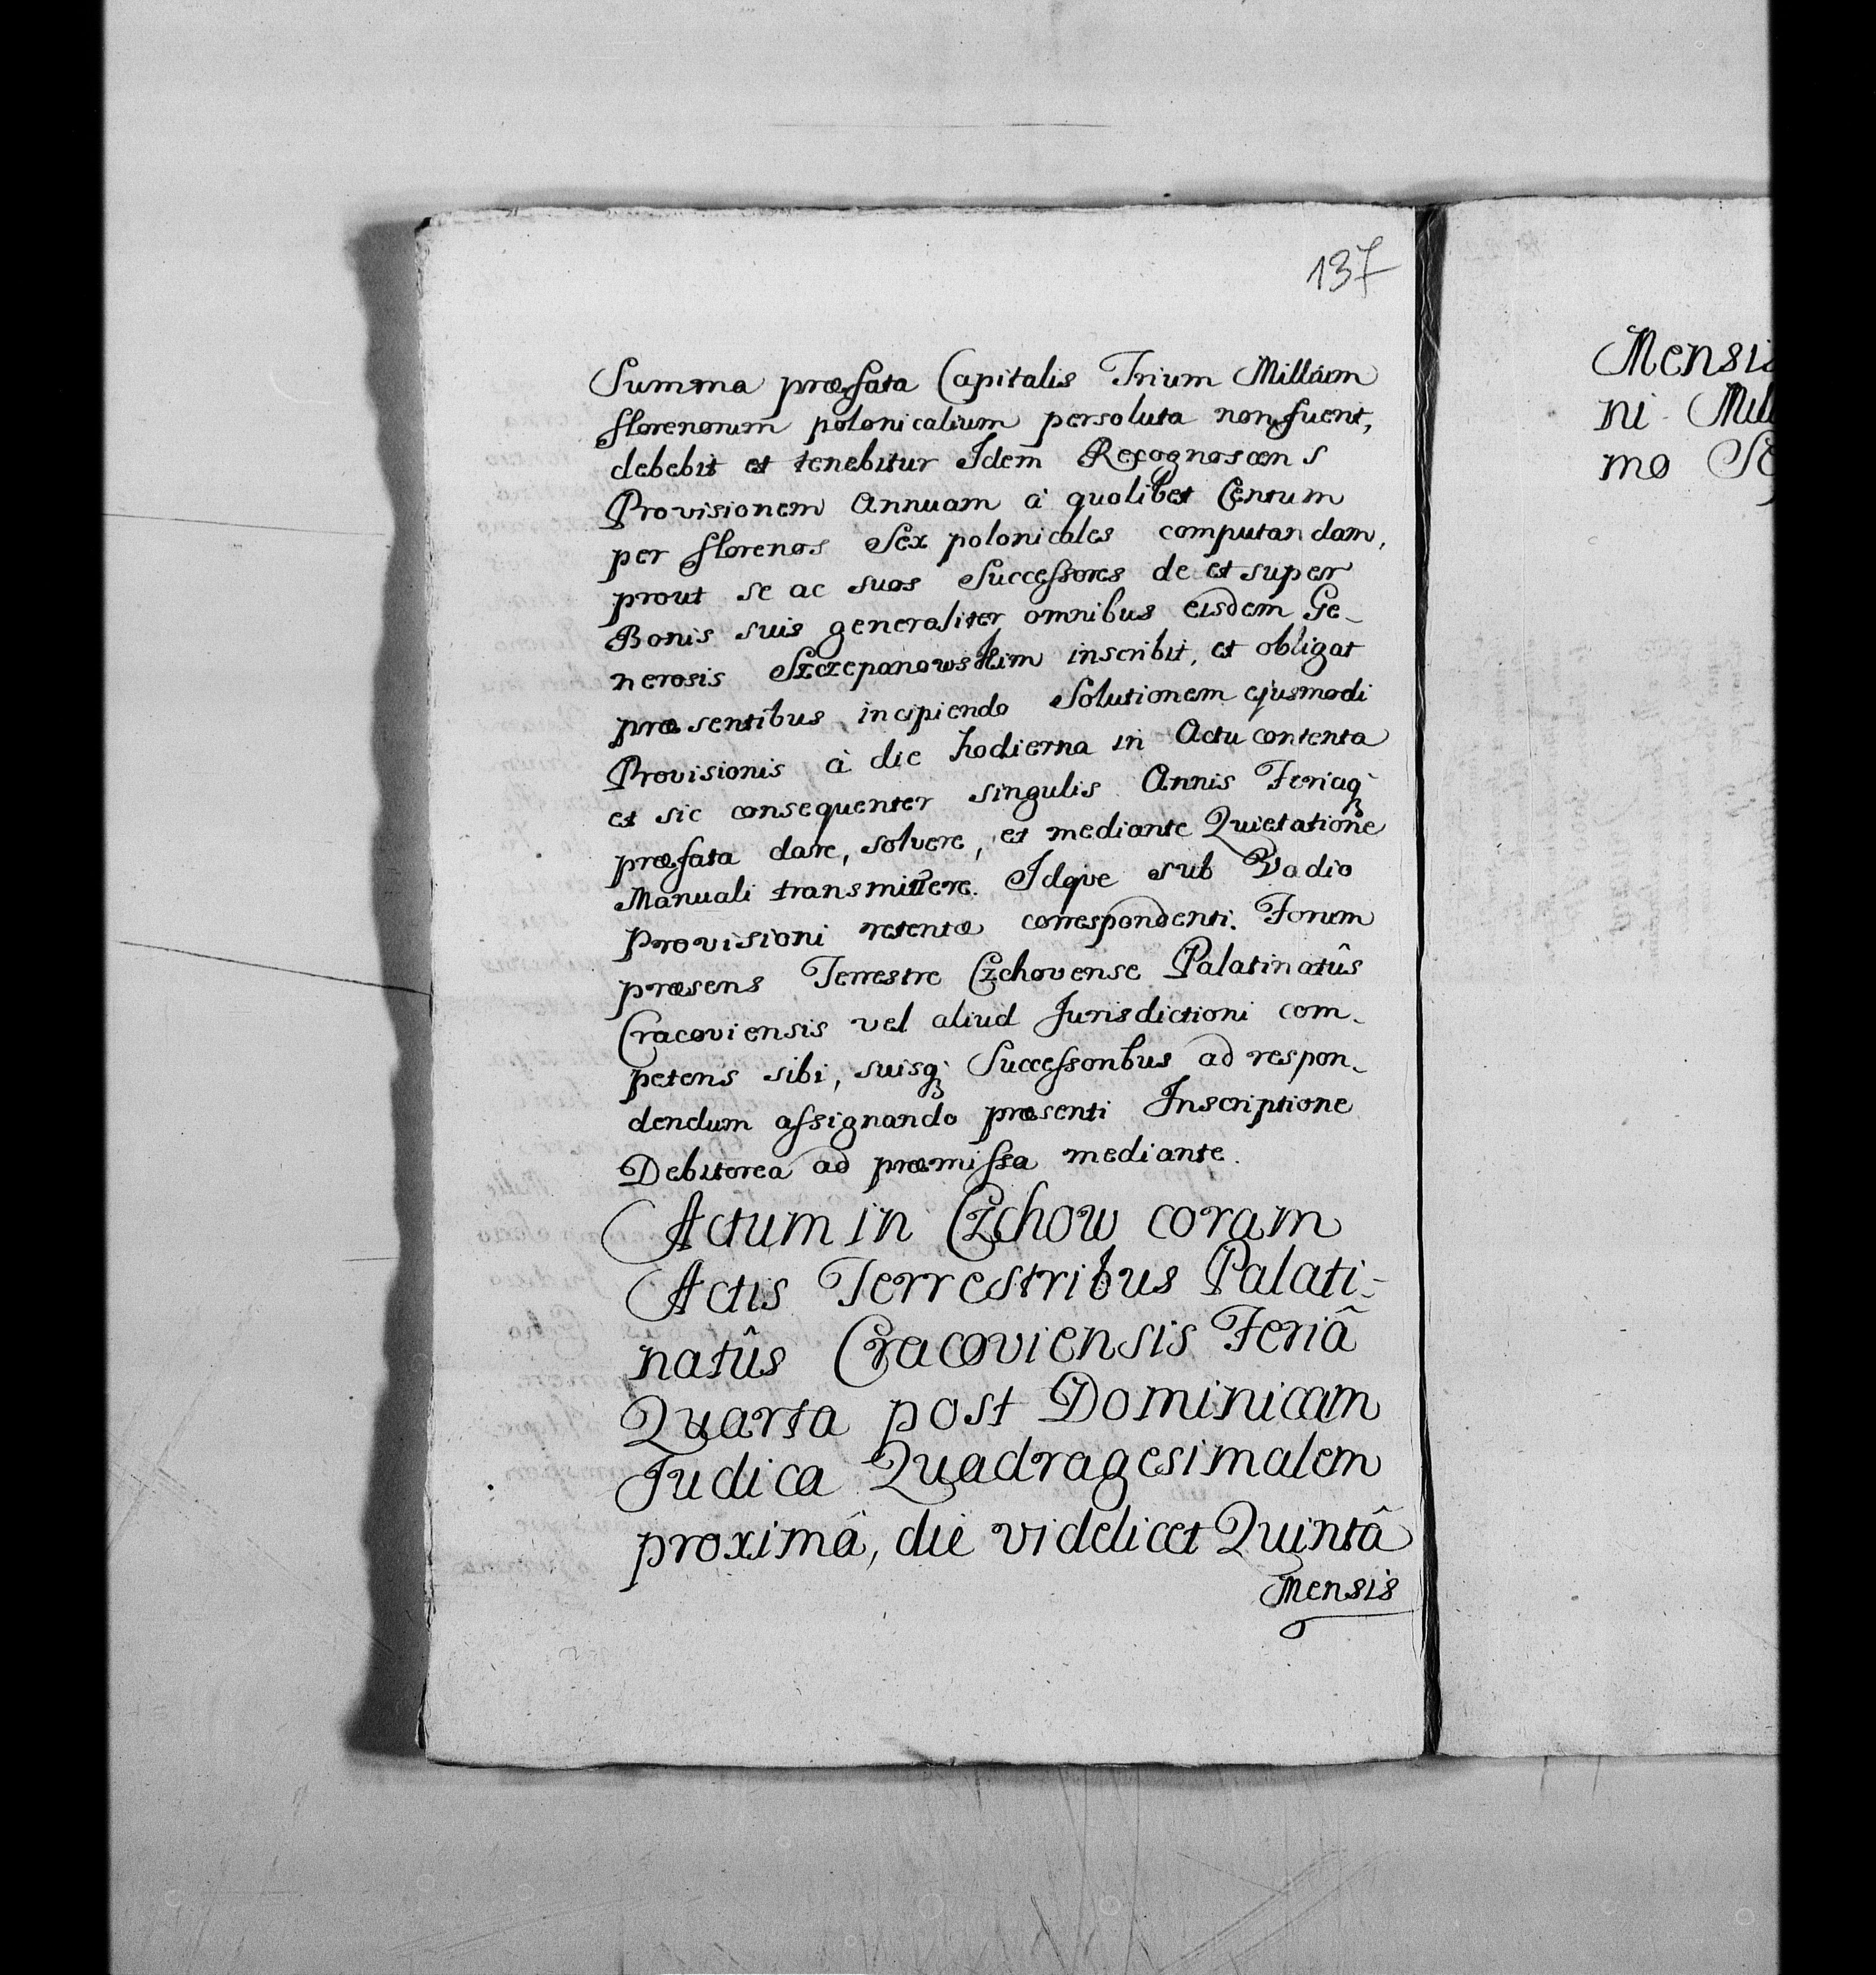 137
Summa præfata Capitalis Trium Millium
florenorum polonicalium persoluta non fuerit,
debebit et tenebitur Idem Recognoscens
Provisionem Annuam à quolibet Centum
per florenos Sex polonicales computandam,
prout se ac suos Successores de et super
Bonis suis generaliter omnibus eisdem Ge-
nerosis Szczepanowskim inscribit, et obligat
præsentibus, incipiendo Solutionem ejusmodi
Provisionis à die hodierna in Actu contenta
et sic consequenter singulis Annis Feriaq3
præfata dare, solvere, et mediante Quietatione
Manuali transmittere. Idqve sub Vadio
provisioni retentæ correspondenti. Forum
præsens Terrestre Czchovense Palatinatûs
Cracoviensis vel aliud Jurisdictioni com-
petens sibi, suisq3 Successoribus ad respon-
dendum assignando præsenti Inscriptione
Debitorea ad præmissa mediante.
Actum in Czchow coram
Actis Terrestribus Palati-
natûs Cracoviensis Feriâ
Quarta post Dominicam
Judica Quadragesimalem
proximâ, die videlicet Quintâ
Mensis
Mensis
ni Mill
mo